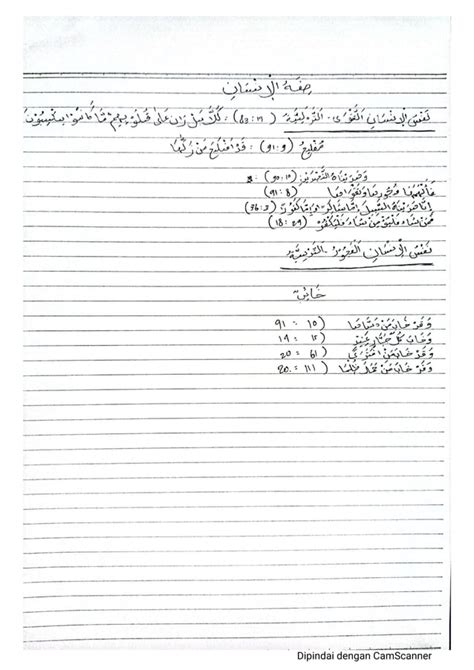 صِفَةُ الْإِنْسَانِ
نَفْسُ الْإِنْسَانِ التَّقْوَى - التَّزْكِيَّة : كَلَّا بَلْ رَانَ عَلَى قُلُوبِهِمْ مَا كَانُوا يَكْسِبُونَ
مُفْلِحٌ (91:9) : قَدْ أَفْلَحَ مَنْ زَكَّاهَا
وَهَدَيْنَاهُ النَّجْدَيْنِ (90:10) :
فَأَلْهَمَهَا فُجُورَهَا وَتَقْوَاهَا (91:8)
إِنَّا هَدَيْنَاهُ السَّبِيلَ إِمَّا شَاكِرًا وَإِمَّا كَفُورًا
فَمَنْ شَاءَ فَلْيُؤْمِنْ وَمَنْ شَاءَ فَلْيَكْفُرْ (18:29)
نَفْسُ الْإِنْسَانِ الْفُجُورُ -
خَائِبٌ
وَقَدْ خَابَ مَنْ دَسَّاهَا (91:10)
وَخَابَ كُلُّ جَبَّارٍ عَنِيدٍ (14:15)
وَقَدْ خَابَ مَنِ افْتَرَى (20:61)
وَقَدْ خَابَ مَنْ حَمَلَ ظُلْمًا (20:111)
Dipindai dengan CamScanner